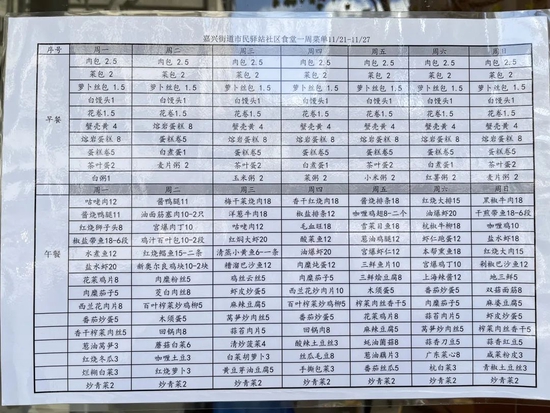 嘉兴街道市民驿站社区食堂一周菜单11/21-11/27
序号 周一 周二 周三 周四 周五 周六 周日
早餐
肉包 2.5 肉包 2.5 肉包 2.5 肉包 2.5 肉包 2.5 肉包 2.5 肉包 2.5
菜包 2 菜包 2 菜包 2 菜包 2 菜包 2 菜包 2 菜包 2
萝卜丝包 1.5 萝卜丝包 1.5 萝卜丝包 1.5 萝卜丝包 1.5 萝卜丝包 1.5 萝卜丝包 1.5 萝卜丝包 1.5
白馒头1 白馒头1 白馒头1 白馒头1 白馒头1 白馒头1 白馒头1
花卷1.5 花卷1.5 花卷1.5 花卷1.5 花卷1.5 花卷1.5 花卷1.5
蟹壳黄 4 蟹壳黄 4 蟹壳黄 4 蟹壳黄 4 蟹壳黄 4 蟹壳黄 4 蟹壳黄 4
熔岩蛋糕 8 熔岩蛋糕 8 熔岩蛋糕 8 熔岩蛋糕 8 熔岩蛋糕 8 熔岩蛋糕 8 熔岩蛋糕 8
蛋糕卷5 蛋糕卷5 蛋糕卷5 蛋糕卷5 蛋糕卷5 蛋糕卷5 蛋糕卷5
茶叶蛋2 白煮蛋1 茶叶蛋2 白煮蛋1 茶叶蛋2 白煮蛋1 茶叶蛋2
白粥1 麦片粥 2 玉米粥 2 菜粥 2 小米粥 2 红薯粥 2 麦片粥 2
午餐 周一 周二 周三 周四 周五 周六 周日
咕咾肉12 酱鸭腿11 梅干菜烧肉18 香干红烧肉18 椒盐排条12 红烧大排15 黑椒牛肉18
酱烧鸭腿11 油面筋塞肉10-2只 洋葱牛肉18 椒盐排条12 咖喱鸡翅8-二个 油爆虾20 干煎带鱼18-6段
红烧狮子头8 宫爆肉丁10 咕咾肉12 毛血旺18 雪菜目鱼18 杭椒牛柳18 咖喱鸡10
椒盐带鱼18-6段 鸡汁百叶包10-2段 红焖大虾20 酸菜鱼12 葱油鸡腿12 虾仁炖蛋12 盐水虾20
水煮鱼12 红烧鲳鱼15-二条 清蒸小黄鱼6-一条 油爆虾20 宫爆虾仁12 本帮熏鱼18 红烧大排15
盐水虾20 新奥尔良鸡块10-2块 糟溜巴沙鱼12 肉糜炖蛋12 三鲜鱼片10 宫爆鸡丁10 剁椒巴沙鱼12
花菜鸡片8 肉糜粉丝5 鸡丝云丝5 虾皮炒蛋5 三鲜烧豆腐8 上海辣酱12 地三鲜5
肉糜茄子5 茭白肉丝8 虾皮炒蛋5 西兰花炒肉片10 肉糜茄子5 番茄炒蛋5 双菇面筋8
西兰花肉片8 百叶榨菜炒鸡柳5 麻辣豆腐5 百叶榨菜炒鸡柳5 榨菜肉丝香干5 肉糜白菜5 麻婆豆腐5
番茄炒蛋5 木须蛋5 莴笋炒肉丝5 蒜苔肉片8 木须蛋5 花菜肉片8 番茄炒蛋5
香干榨菜肉丝5 回锅肉8 蒜苔肉片5 回锅肉8 麻辣豆腐5 莴笋炒肉丝5 榨菜肉丝香干5
葱油莴笋3 蘑菇白菜6 清炒菠菜4 酸辣土豆丝3 蚝油菌菇5 蒜香刀豆5 蒜香红豆5
红烧冬瓜3 咖喱土豆3 白菜胡萝卜3 丝瓜毛豆8 葱油藕片3 广东菜心8 咸菜粉皮3
烂糊白菜3 红烧萝卜3 黄豆芽油豆腐5 手撕包菜3 番茄冬瓜3 杭白菜3 青椒土豆丝3
炒青菜2 炒青菜2 炒青菜2 炒青菜2 炒青菜2 炒青菜2 炒青菜2